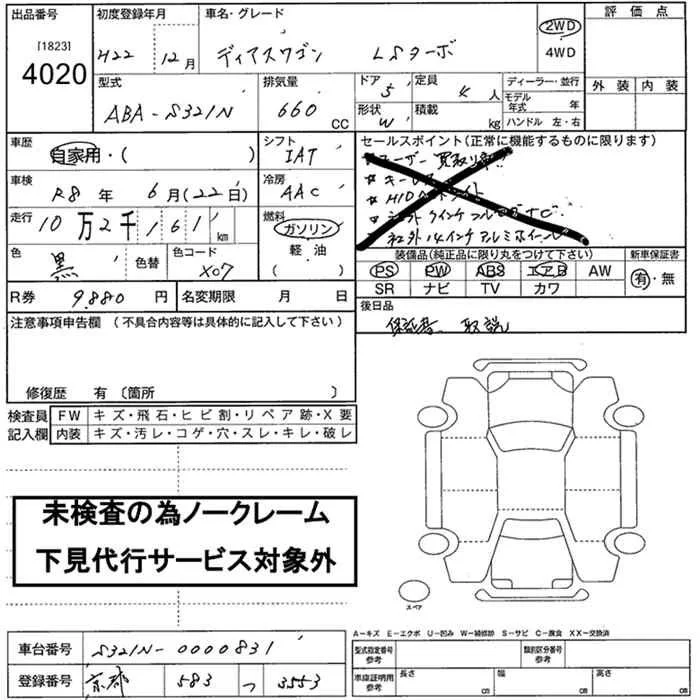 出品番号 [1823] 4020
初度登録年月 H22 12月
車名・グレード ディアスワゴン LSターボ
2WD
4WD
評価点
外装 内装
型式 ABA-S321N
排気量 660 CC
ドア 5
定員 4 人
形状 W
積載 kg
ディーラー・並行
モデル年式 年
ハンドル 左・右
車歴 自家用・( )
シフト IAT
車検 R8年 6月(22日)
冷房 AAC
走行 10万2千161km
燃料 ガソリン
軽油
( )
色 黒 色替
色コード X07
R券 9,880円
名変期限 月 日
セールスポイント(正常に機能するものに限ります)
★ユーザー買取り車
★キーレス
★HIDヘッドライト
★社外
★社外14インチアルミホイール
装備品(純正品に限り丸をつけて下さい)
PS PW ABS エアB AW
SR ナビ TV カワ
新車保証書
有・無
後日品
保証書 取説
注意事項申告欄(不具合内容等は具体的に記入して下さい)
修復歴 有〔箇所 〕
検査員記入欄
FW キズ・飛石・ヒビ割・リペア跡・X要
内装 キズ・汚レ・コゲ・穴・スレ・キレ・破レ
未検査の為ノークレーム
下見代行サービス対象外
スペア
A-キズ E-エクボ U-凹み W-補修跡 S-サビ C-腐食 XX-交換済
車台番号 S321N-0000831
登録番号 京都 583 つ 3553
型式指定番号 参考
類別区分番号 参考
車庫証明用 参考
長さ cm
幅 cm
高さ cm